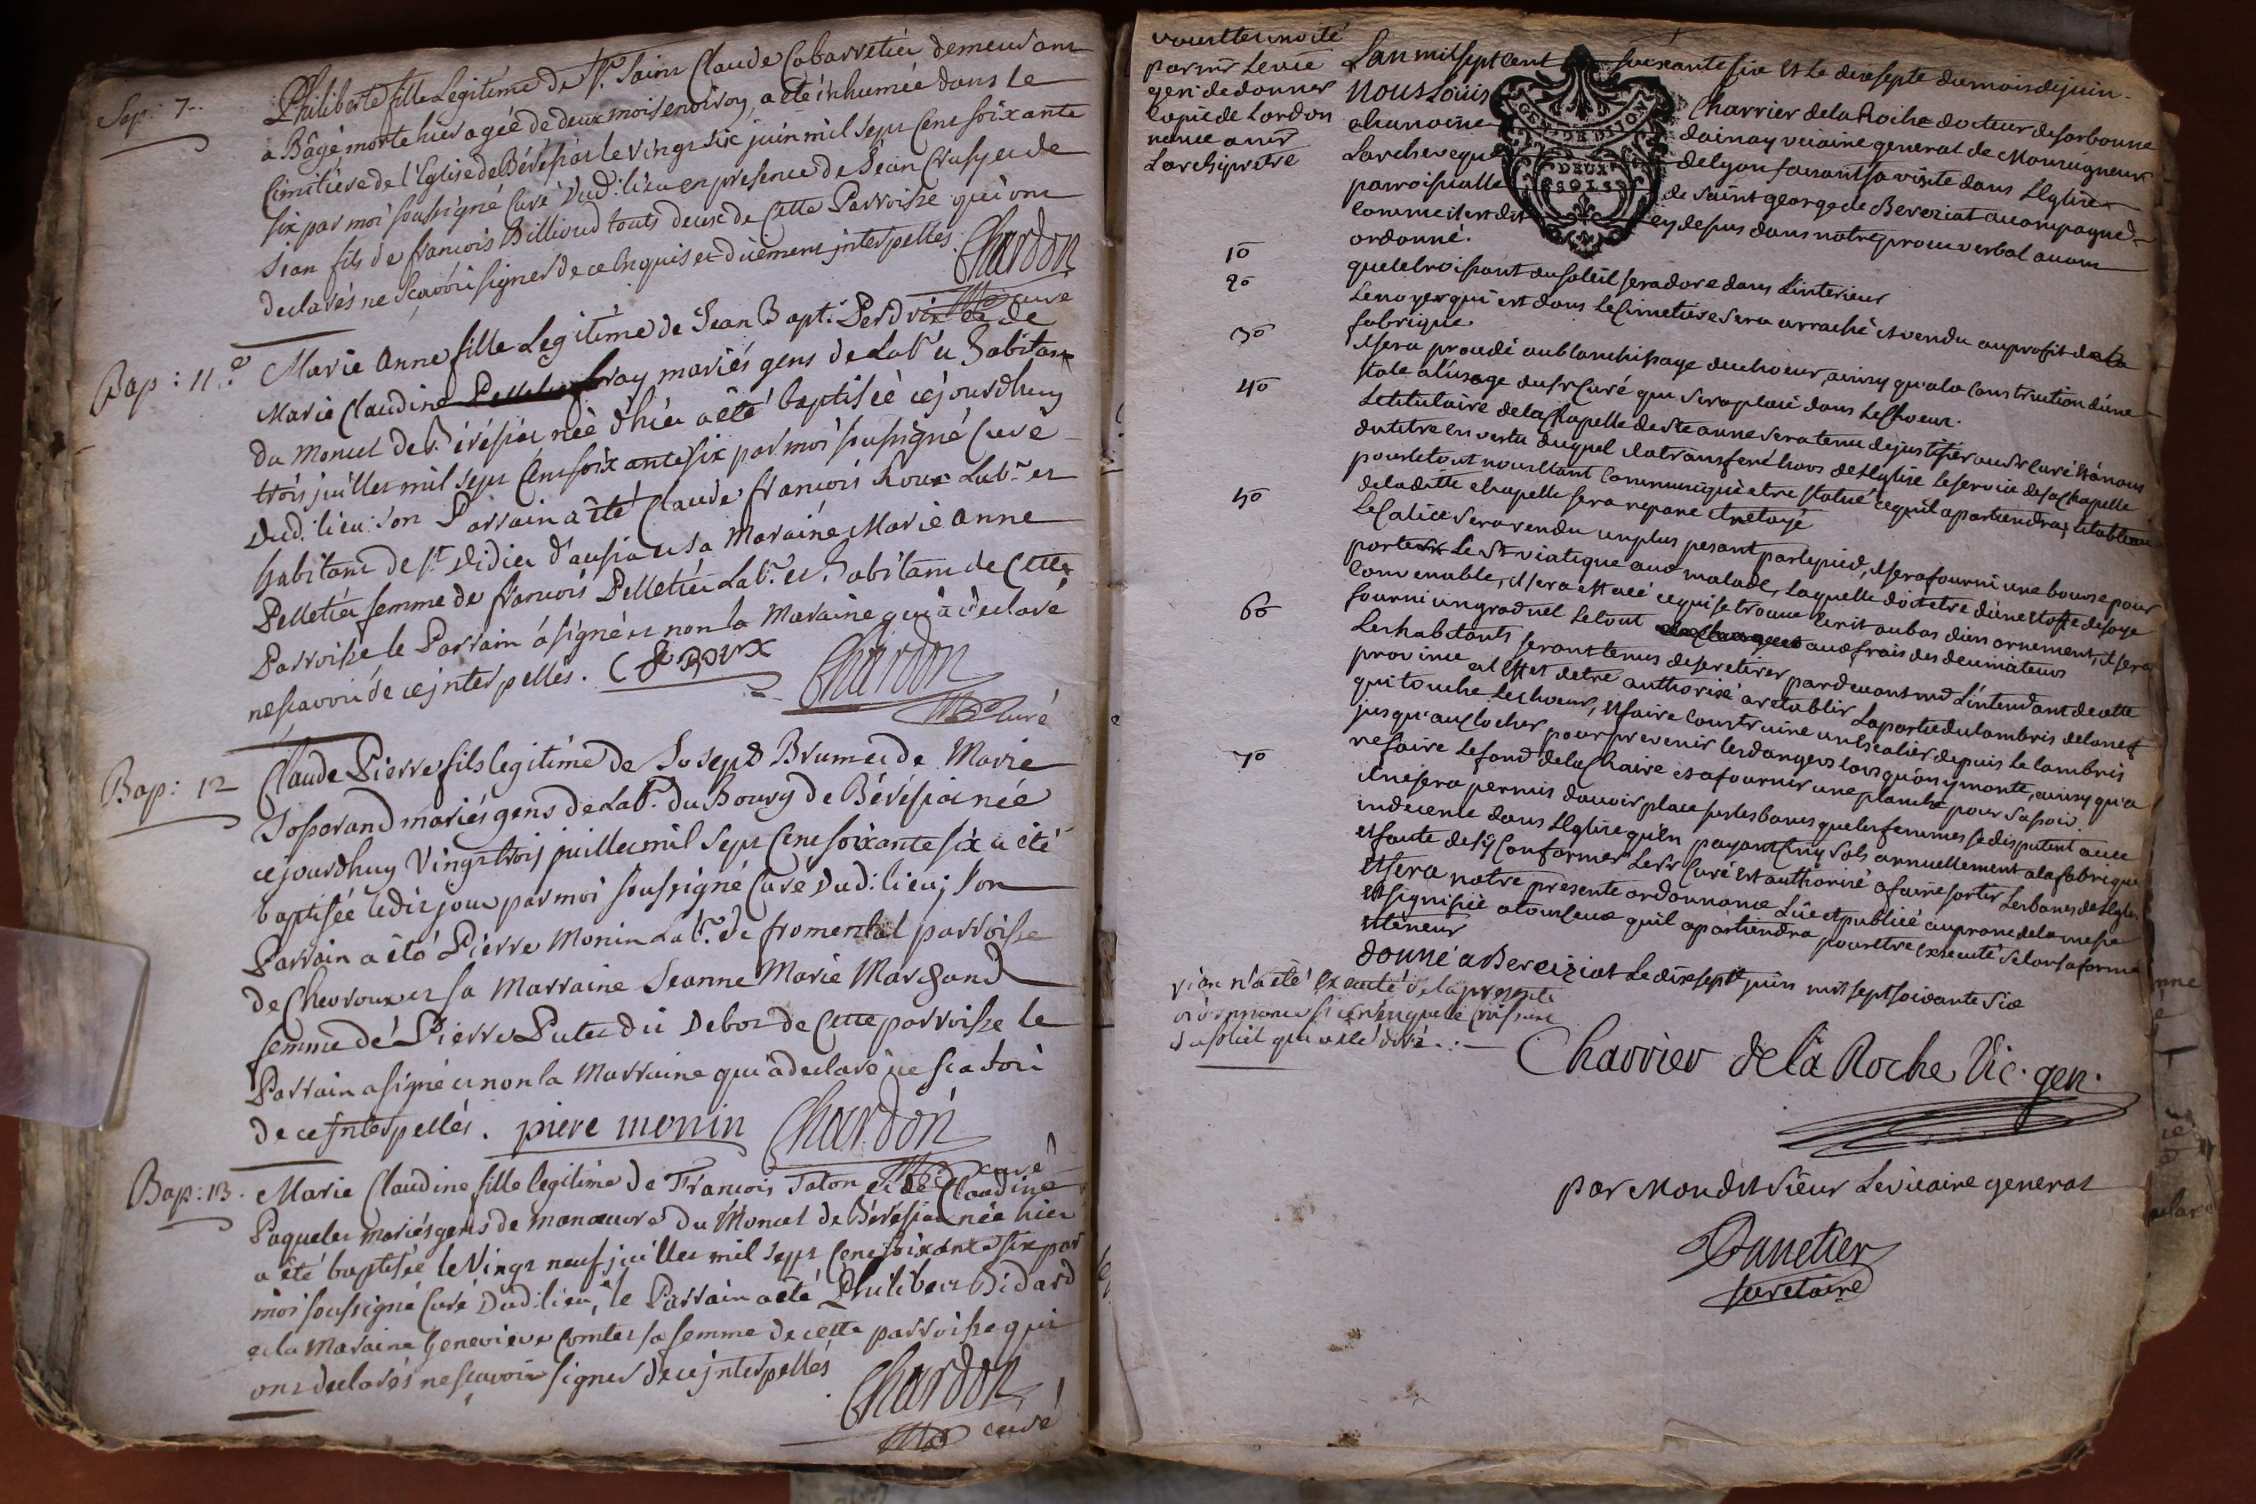 Sep: 7.
Philiberte fille Legitime de Sr. Saint Claude Cabarretier demeurant
a Bâgé morte hier agée de deux mois environ, a été inhumée dans le
Cimitiere de l'Eglise de Bérésiat le vingt six juin mil sept Cent soixante
six par moi soussigné Curé dud: lieu en presence de Jean
fils de francois Billioud touts deux de Cette Parroisse qui ont
declarés ne scavoir signer de ce enquis et duement interpellés.
Chardon
curé
Bap: 11e
Marie Anne fille Legitime de Jean Bapt. Perdrix et de
Marie Claudine mariés gens de Labr et habitans
du Moncel de Bérésiat née d'hier a été baptisée cejourdhuy
trois juillet mil sept Cent soixante six par moi soussigné Curé
dud: lieu son Parrain a été Claude francois Roux Labr. et
habitant de St Didier d'aussiat et sa Maraine Marie Anne
Pelletier femme de francois Pelletier Labr. et habitant de Cette
Parroisse le Parrain a signé et non la Maraine qui a declaré
ne scavoir de ce interpellés. C f Roux Chardon
curé
Bap: 12
Claude Pierre fils legitime de Joseph Brumet de Marie
Josserand mariés gens de Labr. du Bourg de Bérésiat née
cejourdhuy Vingt trois juillet mil sept Cent soixante six a été
baptisée ledit jour par moi soussigné Curé dud: lieu; son
Parrain a été Pierre Monin Labr. de fromental parroisse
de Chevroux et sa Marraine Jeanne Marie Marchand
femme de Pierre Putet du Debot de Cette parroisse le
Parrain a signé et non la Marraine qui a declaré ne scavoir
de ce interpellés. piere monin Chardon
curé
Bap: 13.
Marie Claudine fille legitime de Francois Taton et de Claudine
Paquelet mariés gens de manœuvre du Moncel de Bérésiat née hier
a été baptisée le Vingt neuf juillet mil sept Cent soixante six par
moi soussigné Curé dud: lieu, le Parrain a été Philibert Bidard
et la Maraine Genevieve Comtet sa femme de cette parroisse qui
ont declarés ne scavoir signer de ce interpellés
Chardon
curé
par mr Le vic
gen: de donner
copie de Lordon
nance a mr
Larchiprêtre
Lan mil sept cent soixante six et le dix sept du mois de juin.
Nous Louis Charrier de la Roche docteur de sorbonne
chanoine dainay vicaire general de Monseigneur
Larcheveque de lyon faisant sa visite dans Leglise
parroissialle de saint george de Bereziat accompagné
comme il est dit cy dessus dans notre proces verbal avons
ordonné.
GEN. DE DIJON
DEUX
SOLS
1o que le croissant au soleil sera doré dans Linterieur
2o Le noyer qui est dans Le Cimetiere sera arraché et vendu au profit de la
fabrique.
3o il sera procedé au blanchissage du choeur, ainsy qu'a la construction d'une
stale a l'usage du sr Curé qui sera placé dans Le Choeur.
4o Le titulaire de la Chapelle de Ste anne sera tenu de justifier au sr Curé et a nous
du titre en vertu duquel il a transferé hors de Leglise Le service de sa Chapelle
pour le tout nous etant communiqué etre statué ce qu'il apartiendra, le tableau
de la ditte chapelle sera reparé et netoyé
5o Le Calice sera rendu un plus pesant par le pied, il sera fourni une bourse pour
porter Le St viatique aux malades, Laquelle doit etre d'une etoffe de soye
convenable, il sera effacé ce qui se trouve ecrit au bas d'un ornement, il sera
fourni un graduel Le tout aux frais des decimateurs
6o Les habitants seront tenus de se retirer pardevant mr L'intendant de cette
province a l'effet detre authorisé a retablir La partie du lambris de la nef
qui touche Le choeur, et faire construire un Escalier depuis Le lambris
jusqu'au clocher pour prevenir les dangers lorsqu'on y monte, ainsy qu'a
refaire Le fond de la Chaire et a fournir une planche pour s'asseoir.
7o il ne sera permis d'avoir place sur les bancs que les femmes se disputent avec
indecence dans L'Eglise qu'en payant Cinq sols annuellement a la fabrique
et faute de s'y Conformer Le sr Curé est authorisé a faire sortir Les bancs de L'eglise
et sera notre presente ordonnance Lüe et publiée au prone de la messe
et signifié a tous ceux qu'il apartiendra pour etre executé selon sa forme
et teneur
donné a Bereziat Le dix sept juin mil sept soixante six
rien n'a été executé de la presente
ordonnance si ce n'est que le croissant
du soleil qui a été doré.
Charrier de la Roche Vic. gen.
par Mondit sieur Le vicaire general
secretaire